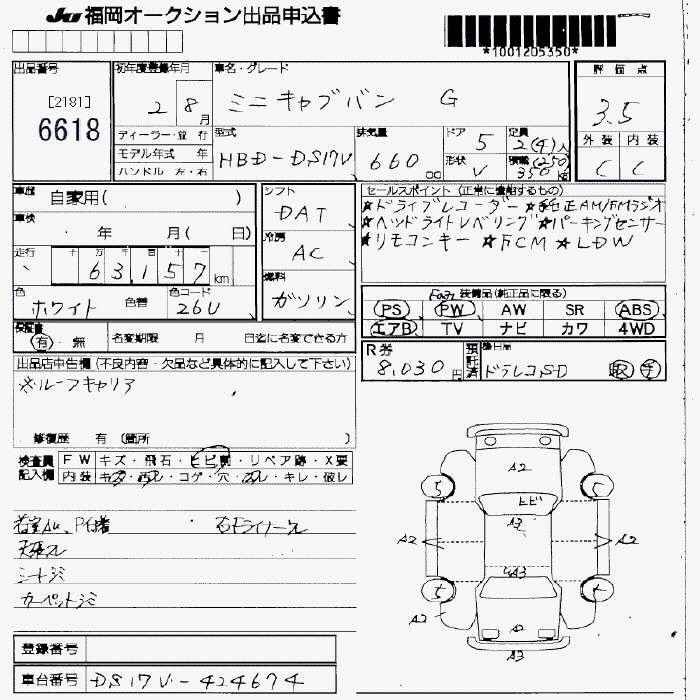 JU 福岡オークション出品申込書
*1001205350*
出品番号
[2181]
6618
初年度登録年月
2 8月
車名・グレード
ミニキャブバン G
評価点
3.5
外装 内装
C C
ディーラー・並行
モデル年式 年
ハンドル 左・右
型式
HBD-DS17V
排気量
660 cc
ドア 5
形状 V
定員 2(4)人
積載 (250) 350 kg
車歴 自家用( )
車検
年 月( 日)
走行
十 万 千 百 十
63157 km
色
ホワイト 色替
色コード
26U
シフト
DAT
冷房
AC
燃料
ガソリン
セールスポイント(正常に機能するもの)
★ドライブレコーダー ★純正AM/FMラジオ
★ヘッドライトレベリング ★パーキングセンサー
★リモコンキー ★FCM ★LDW
装備品(純正品に限る)
PS PW AW SR ABS
エアB TV ナビ カワ 4WD
保証書
有・無
名変期限 月 日迄に名変できる方
R券
8,030円
預託済
後日品
ドラレコSD
取 手
出品店申告欄(不良内容・欠品など具体的に記入して下さい)
※ルーフキャリア
修復歴 有(箇所 )
検査員記入欄
FW キズ・飛石・ヒビ割・リペア跡・X要
内装 キズ・汚レ・コゲ・穴・凹レ・キレ・破レ
天張
シートシミ
カーペットシミ
A2
ヒビ
A3
A2 A2
A3
A2
A2
A3
S
S
登録番号
車台番号 DS17V-424674